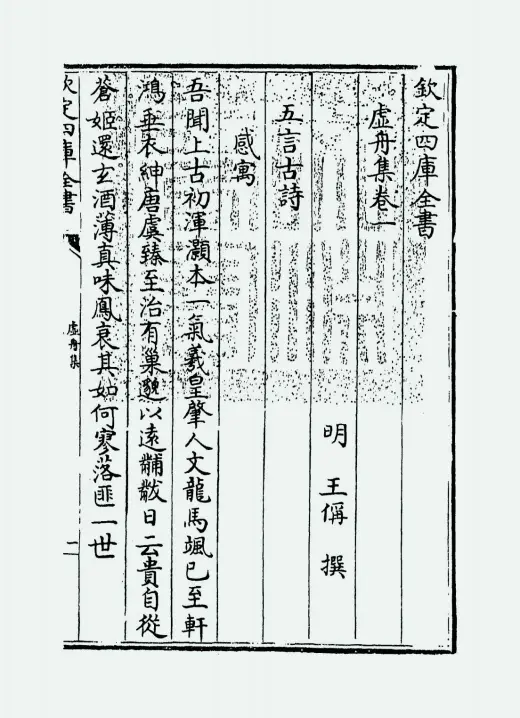 欽定四庫全書
虛舟集卷一
明 王偁 撰
五言古詩
感寓
吾聞上古初渾灝本一氣羲皇肇人文龍馬颯已至軒
鴻垂衣紳唐虞臻至治有巢邈以遠黼黻日云貴自從
蒼姬還玄酒薄真味鳳衰其如何寥落匪一世
欽定四庫全書
虛舟集
一